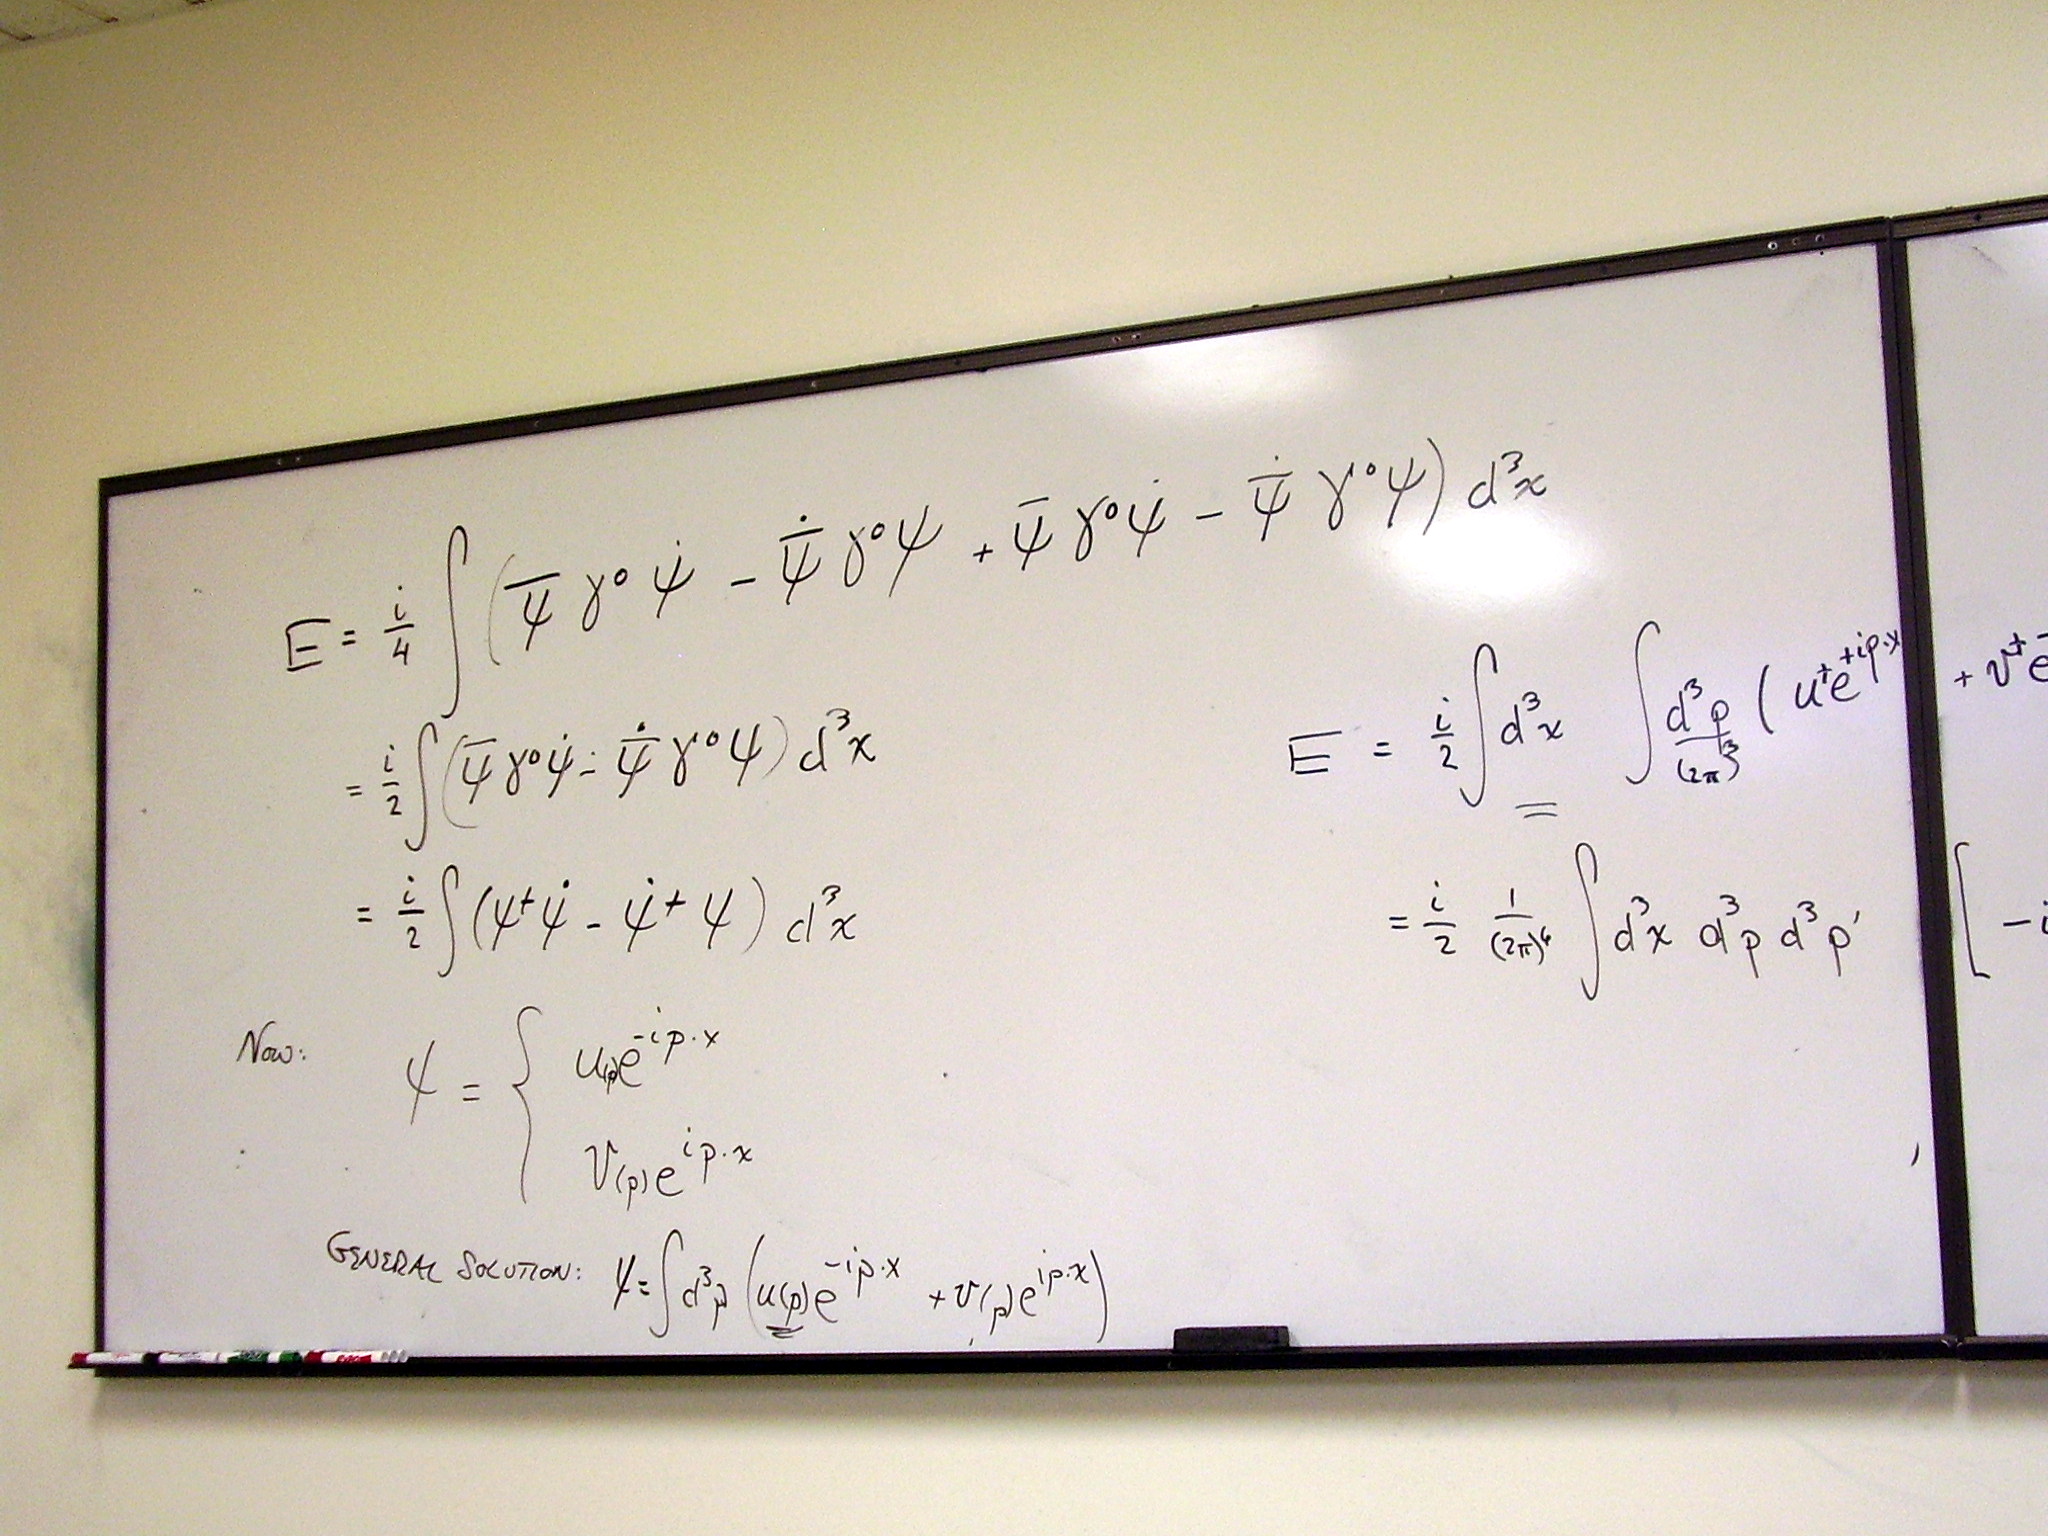 E = i/4 ∫ (ψ̄ γ⁰ ψ̇ - ψ̄̇ γ⁰ ψ + ψ̄ γ⁰ ψ̇ - ψ̄̇ γ⁰ ψ) d³x
= i/2 ∫ (ψ̄ γ⁰ ψ̇ - ψ̄̇ γ⁰ ψ) d³x
= i/2 ∫ (ψ⁺ ψ̇ - ψ̇⁺ ψ) d³x
Now: ψ = { u(p) e^{-ip·x}
v(p) e^{ip·x}
GENERAL SOLUTION: ψ = ∫ d³p (u(p) e^{-ip·x} + v(p) e^{ip·x})
E = i/2 ∫ d³x ∫ d³p/(2π)³ (u⁺ e^{+ip·x} + v⁺ e^-
= i/2 1/(2π)⁶ ∫ d³x d³p d³p' [ -i